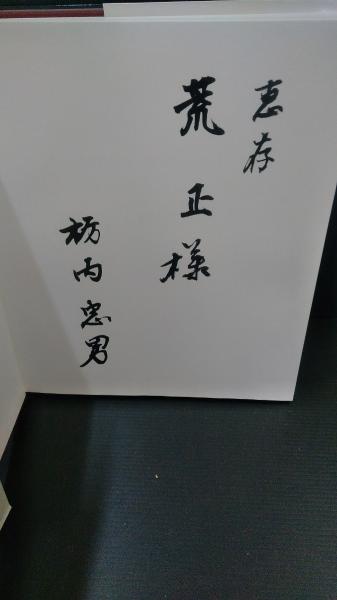 恵存
荒正様
栃内忠男